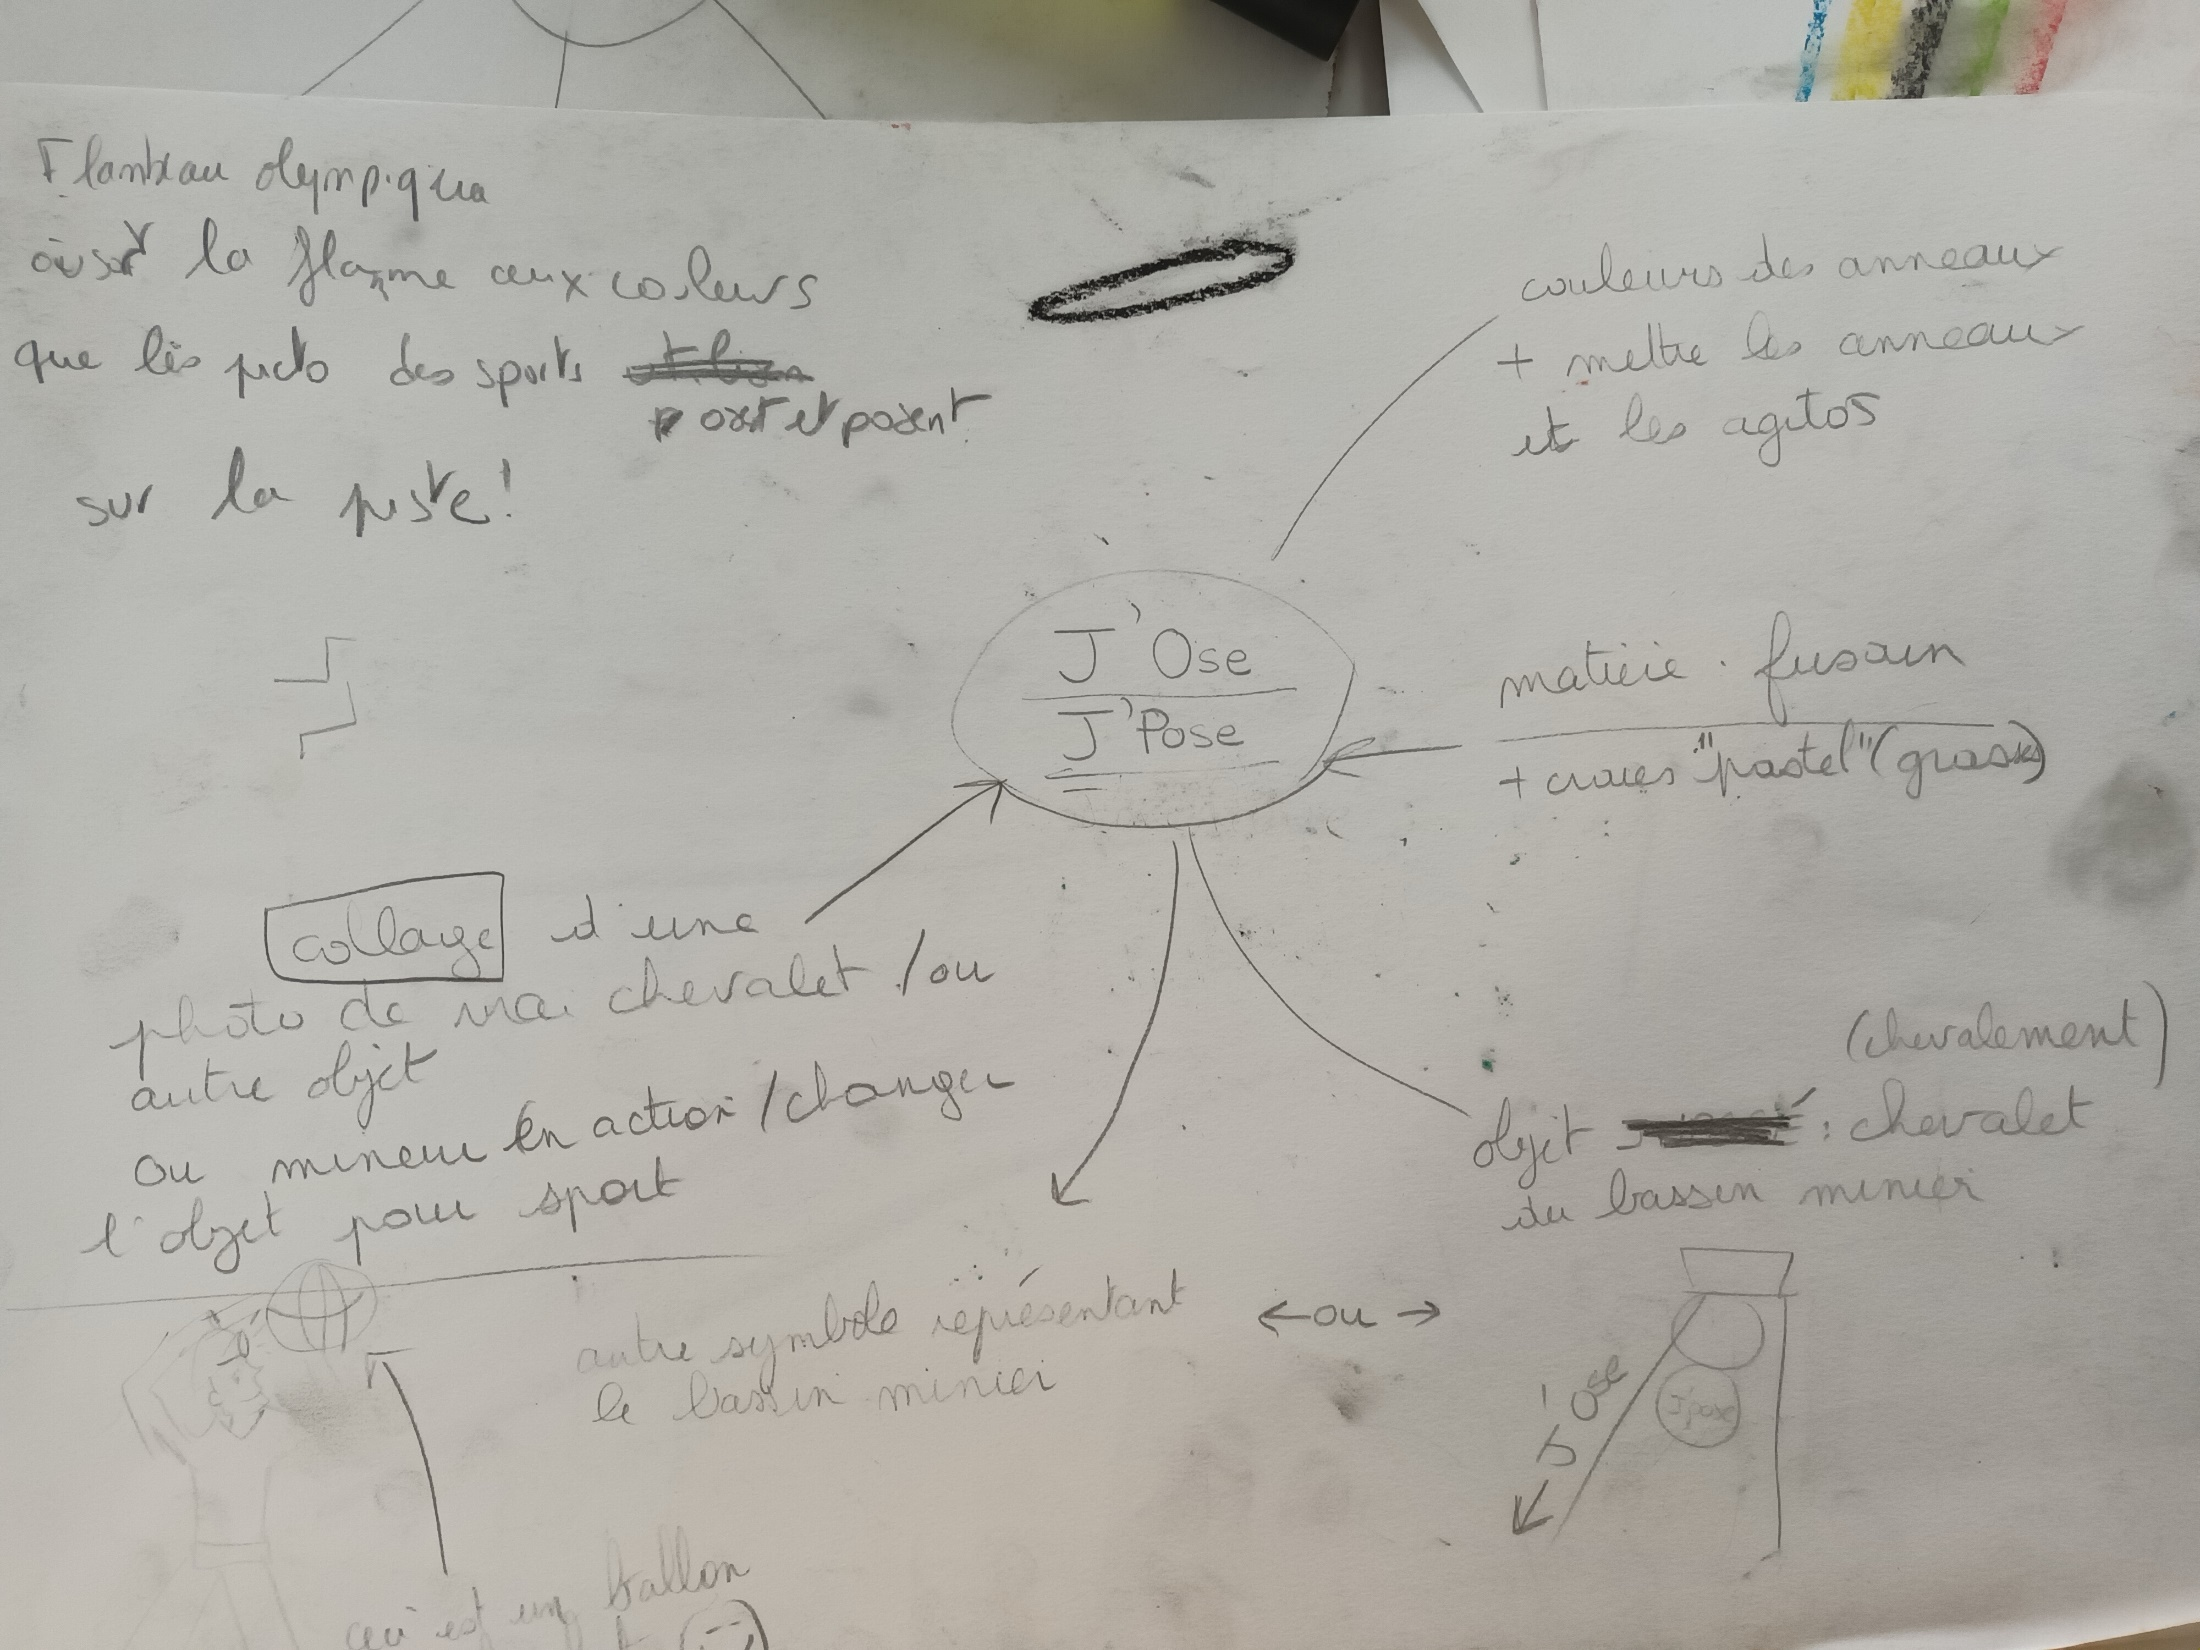 Flambeau olympique
où sort la flamme aux couleurs
que les picto des sports
et posent
sur la piste!
couleurs des anneaux
+ mettre les anneaux
et les agitos
J'Ose
J'Pose
matière : fusain
+ craies "pastel" (grasses)
collage d'une
photo de chevalet / ou
autre objet
ou mineur en action / changer
l'objet pour sport
(chevalement)
objet : chevalet
du bassin minier
autre symbole représentant
le bassin minier
← ou →
J'Ose
J'pose
ceci est un ballon